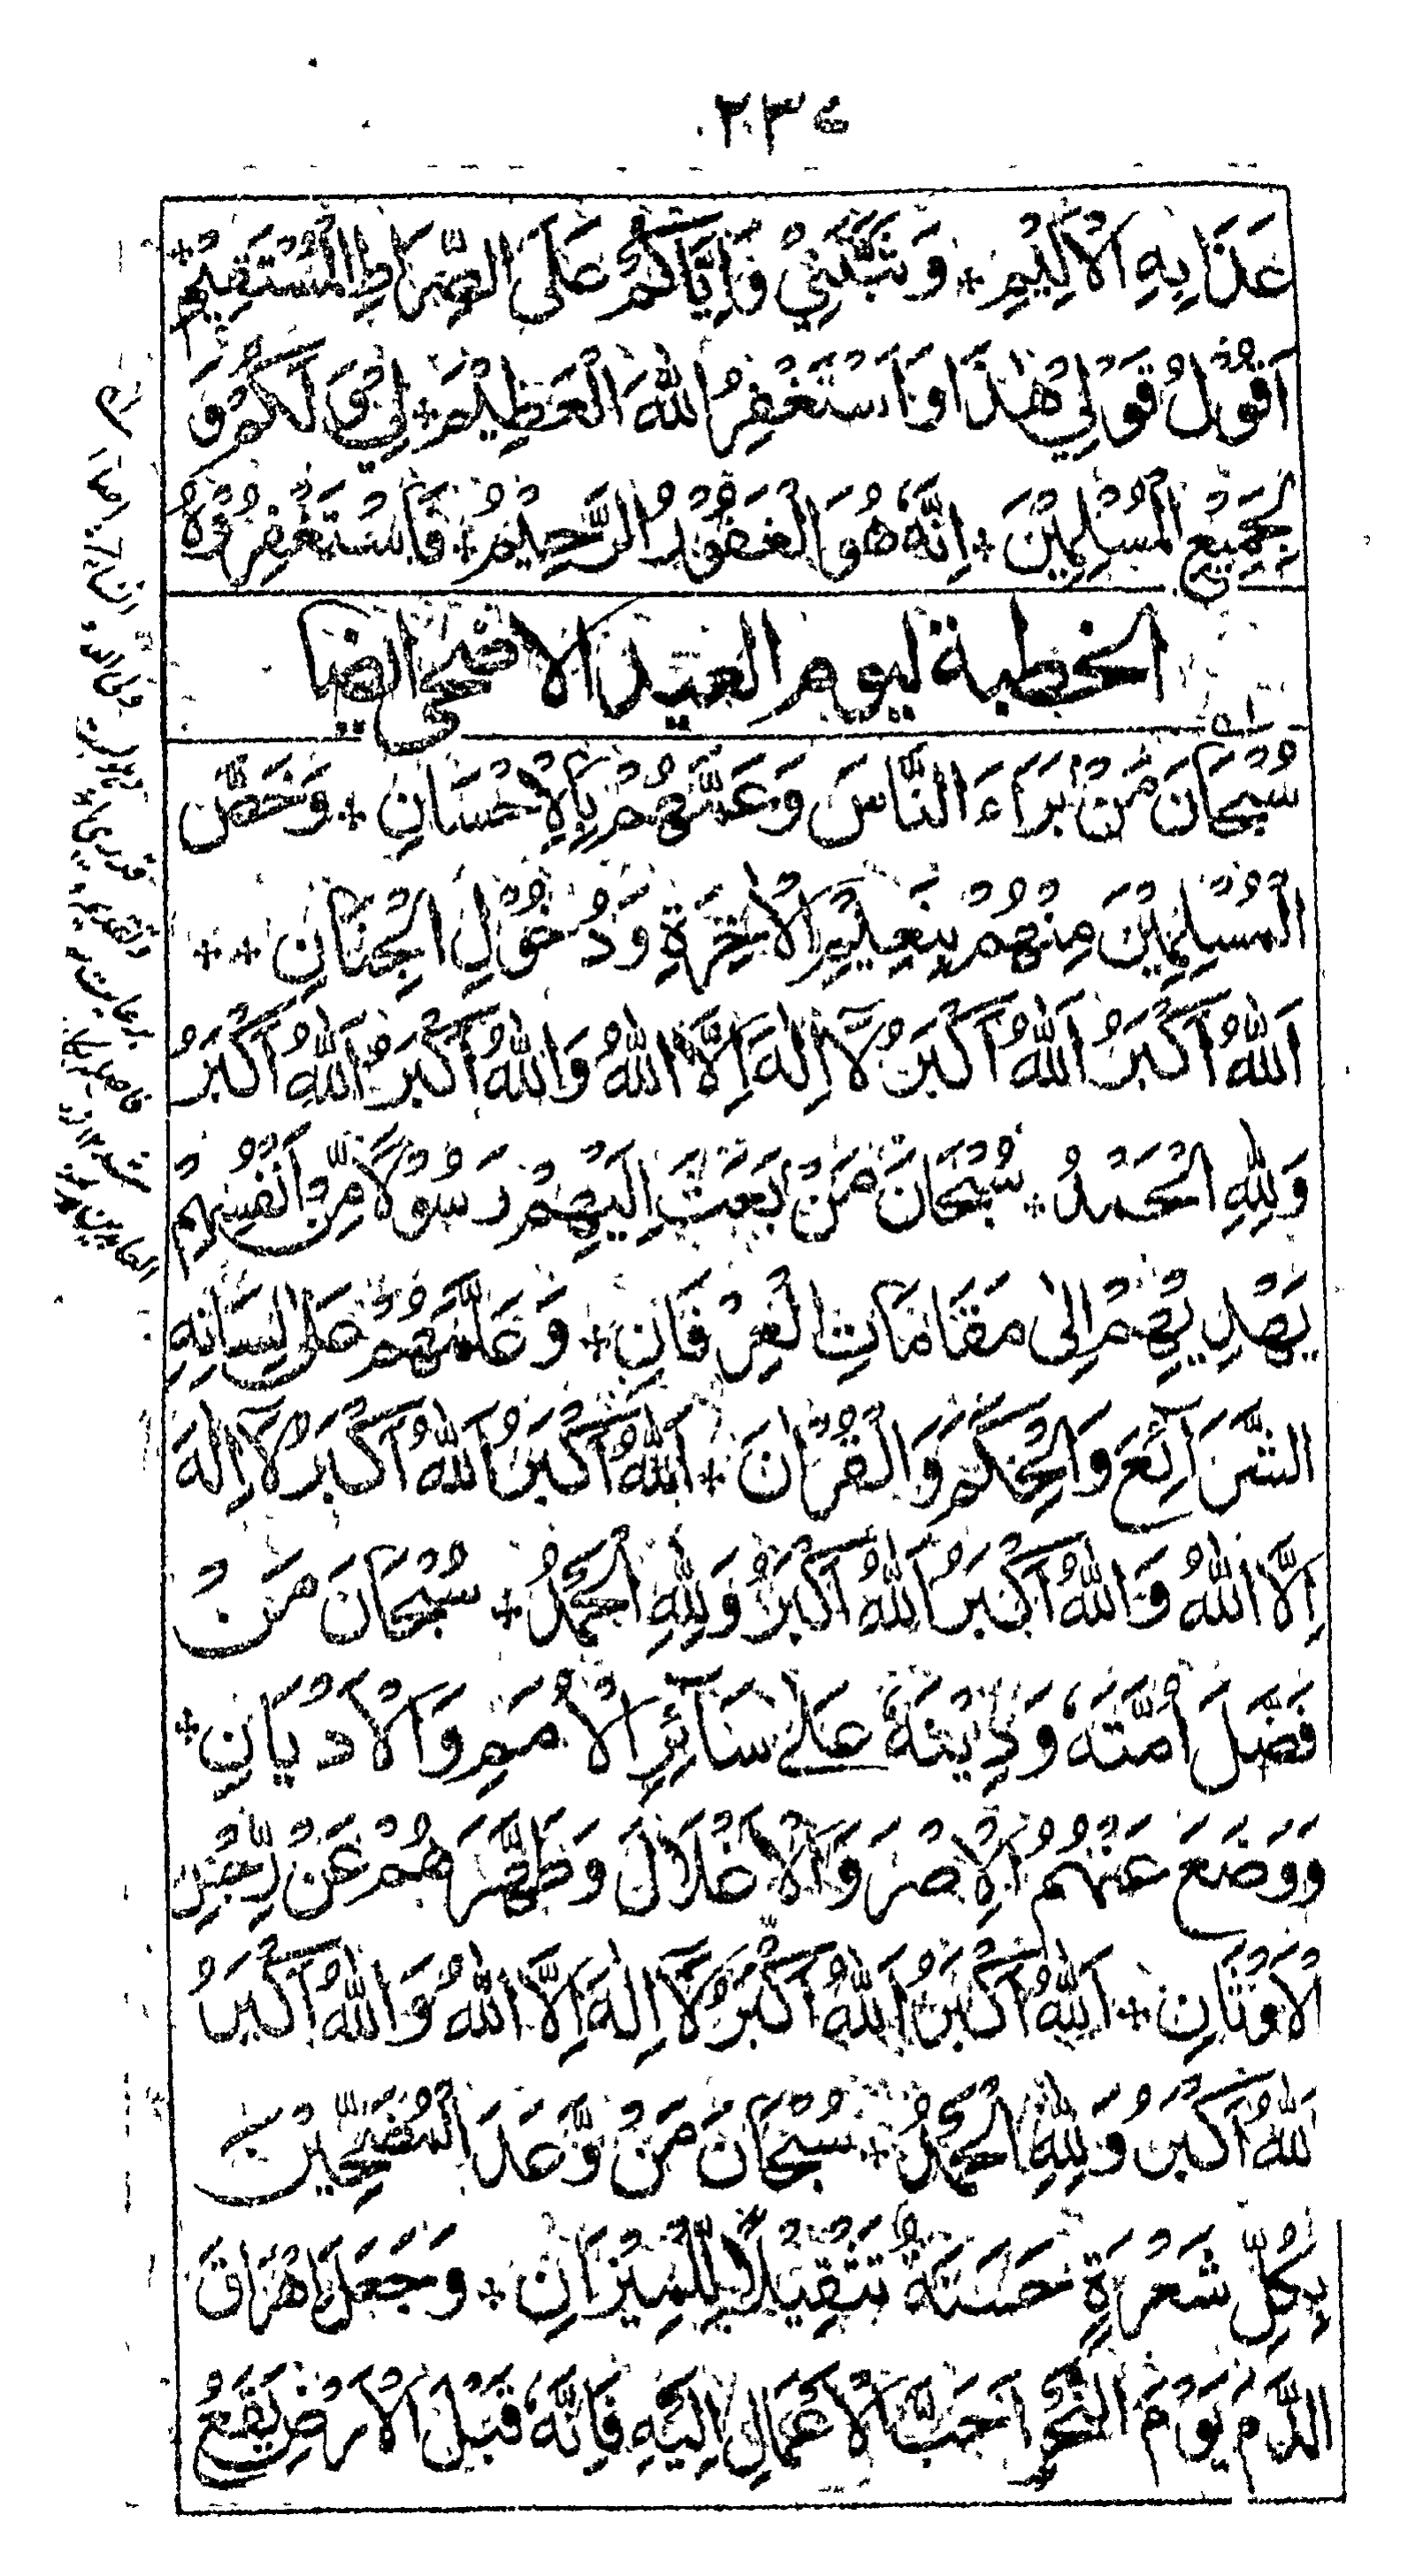 ٢٣٤
عَذَابِهِ الْاَلِيْمِ ٭ وَثَبَّتَنِيْ وَاِيَّاكُمْ عَلَى الصِّرَاطِ الْمُسْتَقِيْمِ ٭
اَقُوْلُ قَوْلِيْ هٰذَا وَاَسْتَغْفِرُ اللهَ الْعَظِيْمَ ٭ لِيْ وَلَكُمْ وَ
لِجَمِيْعِ الْمُسْلِمِيْنَ ٭ اِنَّهٗ هُوَ الْغَفُوْرُ الرَّحِيْمُ ٭ فَاسْتَغْفِرُوْهُ
الخطبة ليوم العيد الاضحى ايضا
سُبْحَانَ مَنْ بَرَاءَ النَّاسَ وَعَمَّهُمْ بِالْاِحْسَانِ ٭ وَخَصَّ
الْمُسْلِمِيْنَ مِنْهُمْ بِنَعِيْمِ الْاٰخِرَةِ وَدُخُوْلِ الْجِنَانِ ٭ ٭
اَللهُ اَكْبَرُ اَللهُ اَكْبَرُ لَآ اِلٰهَ اِلَّا اللهُ وَاللهُ اَكْبَرُ اَللهُ اَكْبَرُ
وَلِلهِ الْحَمْدُ ٭ سُبْحَانَ مَنْ بَعَثَ اِلَيْهِمْ رَسُوْلًا مِّنْ اَنْفُسِهِمْ
يَهْدِيْهِمْ اِلٰى مَقَامَاتِ الْعِرْفَانِ ٭ وَعَلَّمَهُمْ عَلٰى لِسَانِهِ
الشَّرَآئِعَ وَالْحِكَمَ وَالْقُرْاٰنَ ٭ اَللهُ اَكْبَرُ اَللهُ اَكْبَرُ لَآ اِلٰهَ
اِلَّا اللهُ وَاللهُ اَكْبَرُ اَللهُ اَكْبَرُ وَلِلهِ الْحَمْدُ ٭ سُبْحَانَ مَنْ
فَضَّلَ اُمَّتَهٗ وَدِيْنَهٗ عَلٰے سَآئِرِ الْاُمَمِ وَالْاَدْيَانِ ٭
وَوَضَعَ عَنْهُمُ الْاِصْرَ وَالْاَغْلَالَ وَطَهَّرَهُمْ عَنْ رِّجْسِ
الْاَوْثَانِ ٭ اَللهُ اَكْبَرُ اَللهُ اَكْبَرُ لَآ اِلٰهَ اِلَّا اللهُ وَاللهُ اَكْبَرُ
اَللهُ اَكْبَرُ وَلِلهِ الْحَمْدُ ٭ سُبْحَانَ مَنْ وَّعَدَ الْمُضَحِّيْنَ
بِكُلِّ شَعْرَةٍ حَسَنَةً تَثْقِيْلًا لِلْمِيْزَانِ ٭ وَجَعَلَ اِهْرَاقَ
الدَّمِ يَوْمَ النَّحْرِ اَحَبَّ الْاَعْمَالِ اِلَيْهِ فَاِنَّهٗ قَبْلَ الْاَرْضِ يَقَعُ